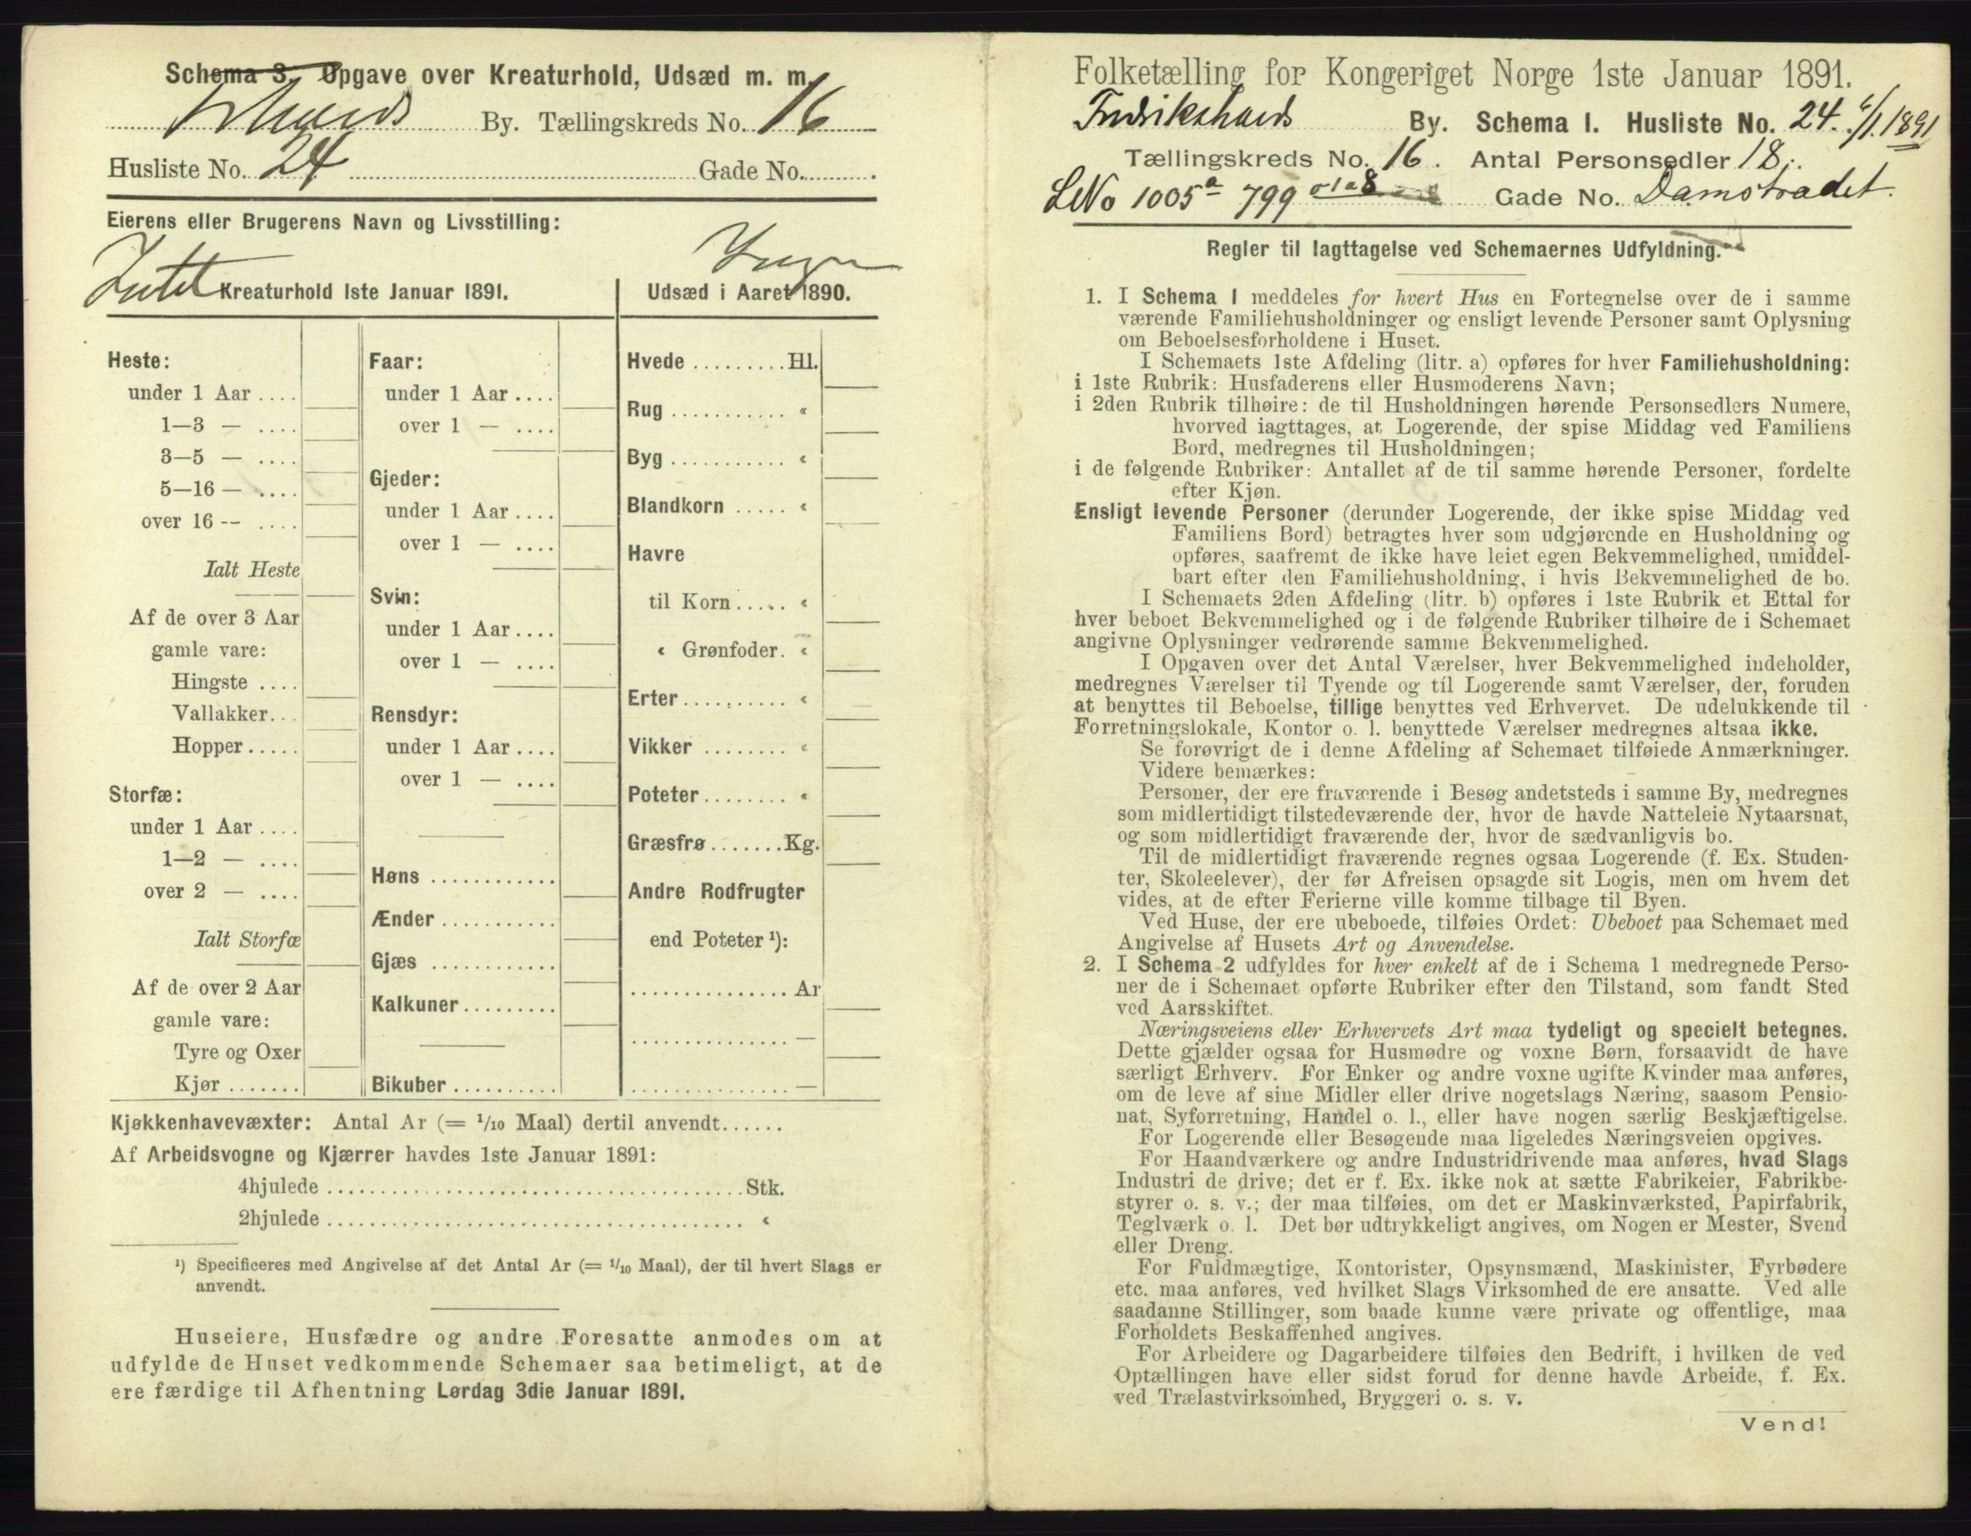 Schema 3. Opgave over Kreaturhold, Udsæd m. m.
Fr.hald By. Tællingskreds No. 16
Husliste No. 24 Gade No.
Eierens eller Brugerens Navn og Livsstilling:
Intet Ingen
Kreaturhold 1ste Januar 1891.
Heste:
under 1 Aar ....
1—3 — ....
3—5 — ....
5—16 — ....
over 16 -- ....
Ialt Heste
Af de over 3 Aar
gamle vare:
Hingste ....
Vallakker...
Hopper.....
Storfæ:
under 1 Aar ....
1—2 — ....
over 2 — ....
Ialt Storfæ
Af de over 2 Aar
gamle vare:
Tyre og Oxer
Kjør .......
Faar:
under 1 Aar ....
over 1 — ....
Gjeder:
under 1 Aar ....
over 1 — ....
Svin:
under 1 Aar ....
over 1 — ....
Rensdyr:
under 1 Aar ....
over 1 — ....
Høns ............
Ænder ...........
Gjæs ............
Kalkuner.........
Bikuber ..........
Udsæd i Aaret 1890.
Hvede ......... Hl.
Rug ........... «
Byg ........... «
Blandkorn ..... «
Havre
til Korn ..... «
« Grønfoder. «
Erter .......... «
Vikker ........ «
Poteter ........ «
Græsfrø ....... Kg.
Andre Rodfrugter
end Poteter ¹):
............... Ar
............... —
............... —
Kjøkkenhavevæxter: Antal Ar (= 1/10 Maal) dertil anvendt......
Af Arbeidsvogne og Kjærrer havdes 1ste Januar 1891:
4hjulede ........................................ Stk.
2hjulede ........................................ «
¹) Specificeres med Angivelse af det Antal Ar (= 1/10 Maal), der til hvert Slags er
anvendt.
Huseiere, Husfædre og andre Foresatte anmodes om at
udfylde de Huset vedkommende Schemaer saa betimeligt, at de
ere færdige til Afhentning Lørdag 3die Januar 1891.
Folketælling for Kongeriget Norge 1ste Januar 1891.
Fredrikshalds By. Schema I. Husliste No. 24. 6/1.1891
Tællingskreds No. 16. Antal Personsedler 18.
LNo 1005a 799 Gade No. Damstrædet.
Regler til Iagttagelse ved Schemaernes Udfyldning.
1. I Schema 1 meddeles for hvert Hus en Fortegnelse over de i samme
værende Familiehusholdninger og ensligt levende Personer samt Oplysning
om Beboelsesforholdene i Huset.
I Schemaets 1ste Afdeling (litr. a) opføres for hver Familiehusholdning:
i 1ste Rubrik: Husfaderens eller Husmoderens Navn;
i 2den Rubrik tilhøire: de til Husholdningen hørende Personsedlers Numere,
hvorved iagttages, at Logerende, der spise Middag ved Familiens
Bord, medregnes til Husholdningen;
i de følgende Rubriker: Antallet af de til samme hørende Personer, fordelte
efter Kjøn.
Ensligt levende Personer (derunder Logerende, der ikke spise Middag ved
Familiens Bord) betragtes hver som udgjørende en Husholdning og
opføres, saafremt de ikke have leiet egen Bekvemmelighed, umiddel-
bart efter den Familiehusholdning, i hvis Bekvemmelighed de bo.
I Schemaets 2den Afdeling (litr. b) opføres i 1ste Rubrik et Ettal for
hver beboet Bekvemmelighed og i de følgende Rubriker tilhøire de i Schemaet
angivne Oplysninger vedrørende samme Bekvemmelighed.
I Opgaven over det Antal Værelser, hver Bekvemmelighed indeholder,
medregnes Værelser til Tyende og til Logerende samt Værelser, der, foruden
at benyttes til Beboelse, tillige benyttes ved Erhvervet. De udelukkende til
Forretningslokale, Kontor o. l. benyttede Værelser medregnes altsaa ikke.
Se forøvrigt de i denne Afdeling af Schemaet tilføiede Anmærkninger.
Videre bemærkes:
Personer, der ere fraværende i Besøg andetsteds i samme By, medregnes
som midlertidigt tilstedeværende der, hvor de havde Natteleie Nytaarsnat,
og som midlertidigt fraværende der, hvor de sædvanligvis bo.
Til de midlertidigt fraværende regnes ogsaa Logerende (f. Ex. Studen-
ter, Skoleelever), der før Afreisen opsagde sit Logis, men om hvem det
vides, at de efter Ferierne ville komme tilbage til Byen.
Ved Huse, der ere ubeboede, tilføies Ordet: Ubeboet paa Schemaet med
Angivelse af Husets Art og Anvendelse.
2. I Schema 2 udfyldes for hver enkelt af de i Schema 1 medregnede Perso-
ner de i Schemaet opførte Rubriker efter den Tilstand, som fandt Sted
ved Aarsskiftet.
Næringsveiens eller Erhvervets Art maa tydeligt og specielt betegnes.
Dette gjælder ogsaa for Husmødre og voxne Børn, forsaavidt de have
særligt Erhverv. For Enker og andre voxne ugifte Kvinder maa anføres,
om de leve af sine Midler eller drive nogetslags Næring, saasom Pensio-
nat, Syforretning, Handel o. l., eller have nogen særlig Beskjæftigelse.
For Logerende eller Besøgende maa ligeledes Næringsveien opgives.
For Haandværkere og andre Industridrivende maa anføres, hvad Slags
Industri de drive; det er f. Ex. ikke nok at sætte Fabrikeier, Fabrikbe-
styrer o. s. v.; der maa tilføies, om det er Maskinværksted, Papirfabrik,
Teglværk o. l. Det bør udtrykkeligt angives, om Nogen er Mester, Svend
eller Dreng.
For Fuldmægtige, Kontorister, Opsynsmænd, Maskinister, Fyrbødere
etc. maa anføres, ved hvilket Slags Virksomhed de ere ansatte. Ved alle
saadanne Stillinger, som baade kunne være private og offentlige, maa
Forholdets Beskaffenhed angives.
For Arbeidere og Dagarbeidere tilføies den Bedrift, i hvilken de ved
Optællingen have eller sidst forud for denne havde Arbeide, f. Ex.
ved Trælastvirksomhed, Bryggeri o. s. v.
Vend!